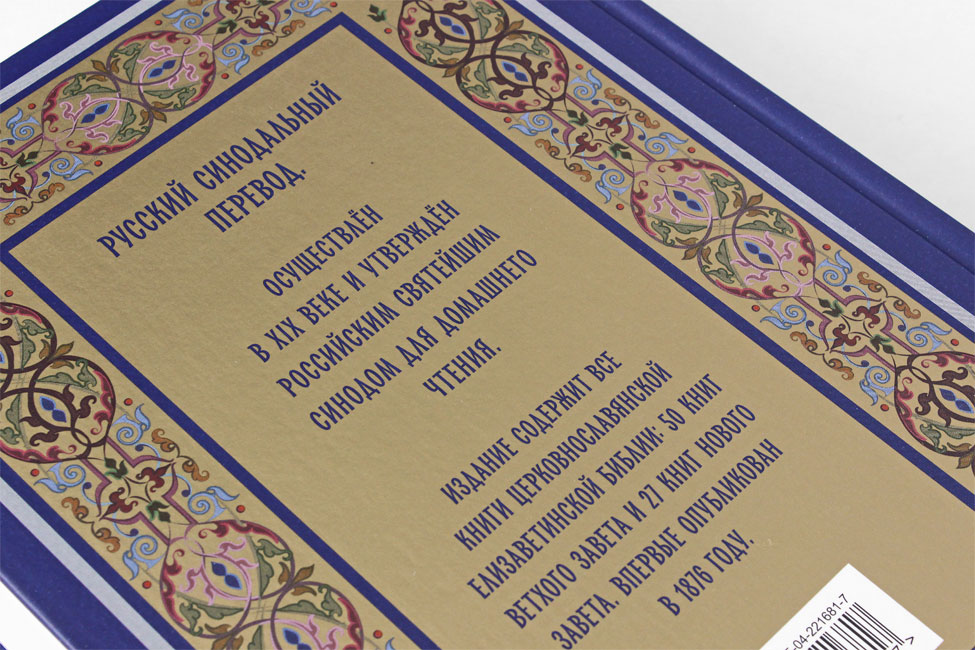 РУССКИЙ СИНОДАЛЬНЫЙ
ПЕРЕВОД.
ОСУЩЕСТВЛЁН
В XIX ВЕКЕ И УТВЕРЖДЁН
РОССИЙСКИМ СВЯТЕЙШИМ
СИНОДОМ ДЛЯ ДОМАШНЕГО
ЧТЕНИЯ.
ИЗДАНИЕ СОДЕРЖИТ ВСЕ
КНИГИ ЦЕРКОВНОСЛАВЯНСКОЙ
ЕЛИЗАВЕТИНСКОЙ БИБЛИИ: 50 КНИГ
ВЕТХОГО ЗАВЕТА И 27 КНИГ НОВОГО
ЗАВЕТА. ВПЕРВЫЕ ОПУБЛИКОВАН
В 1876 ГОДУ.
-04-221681-7